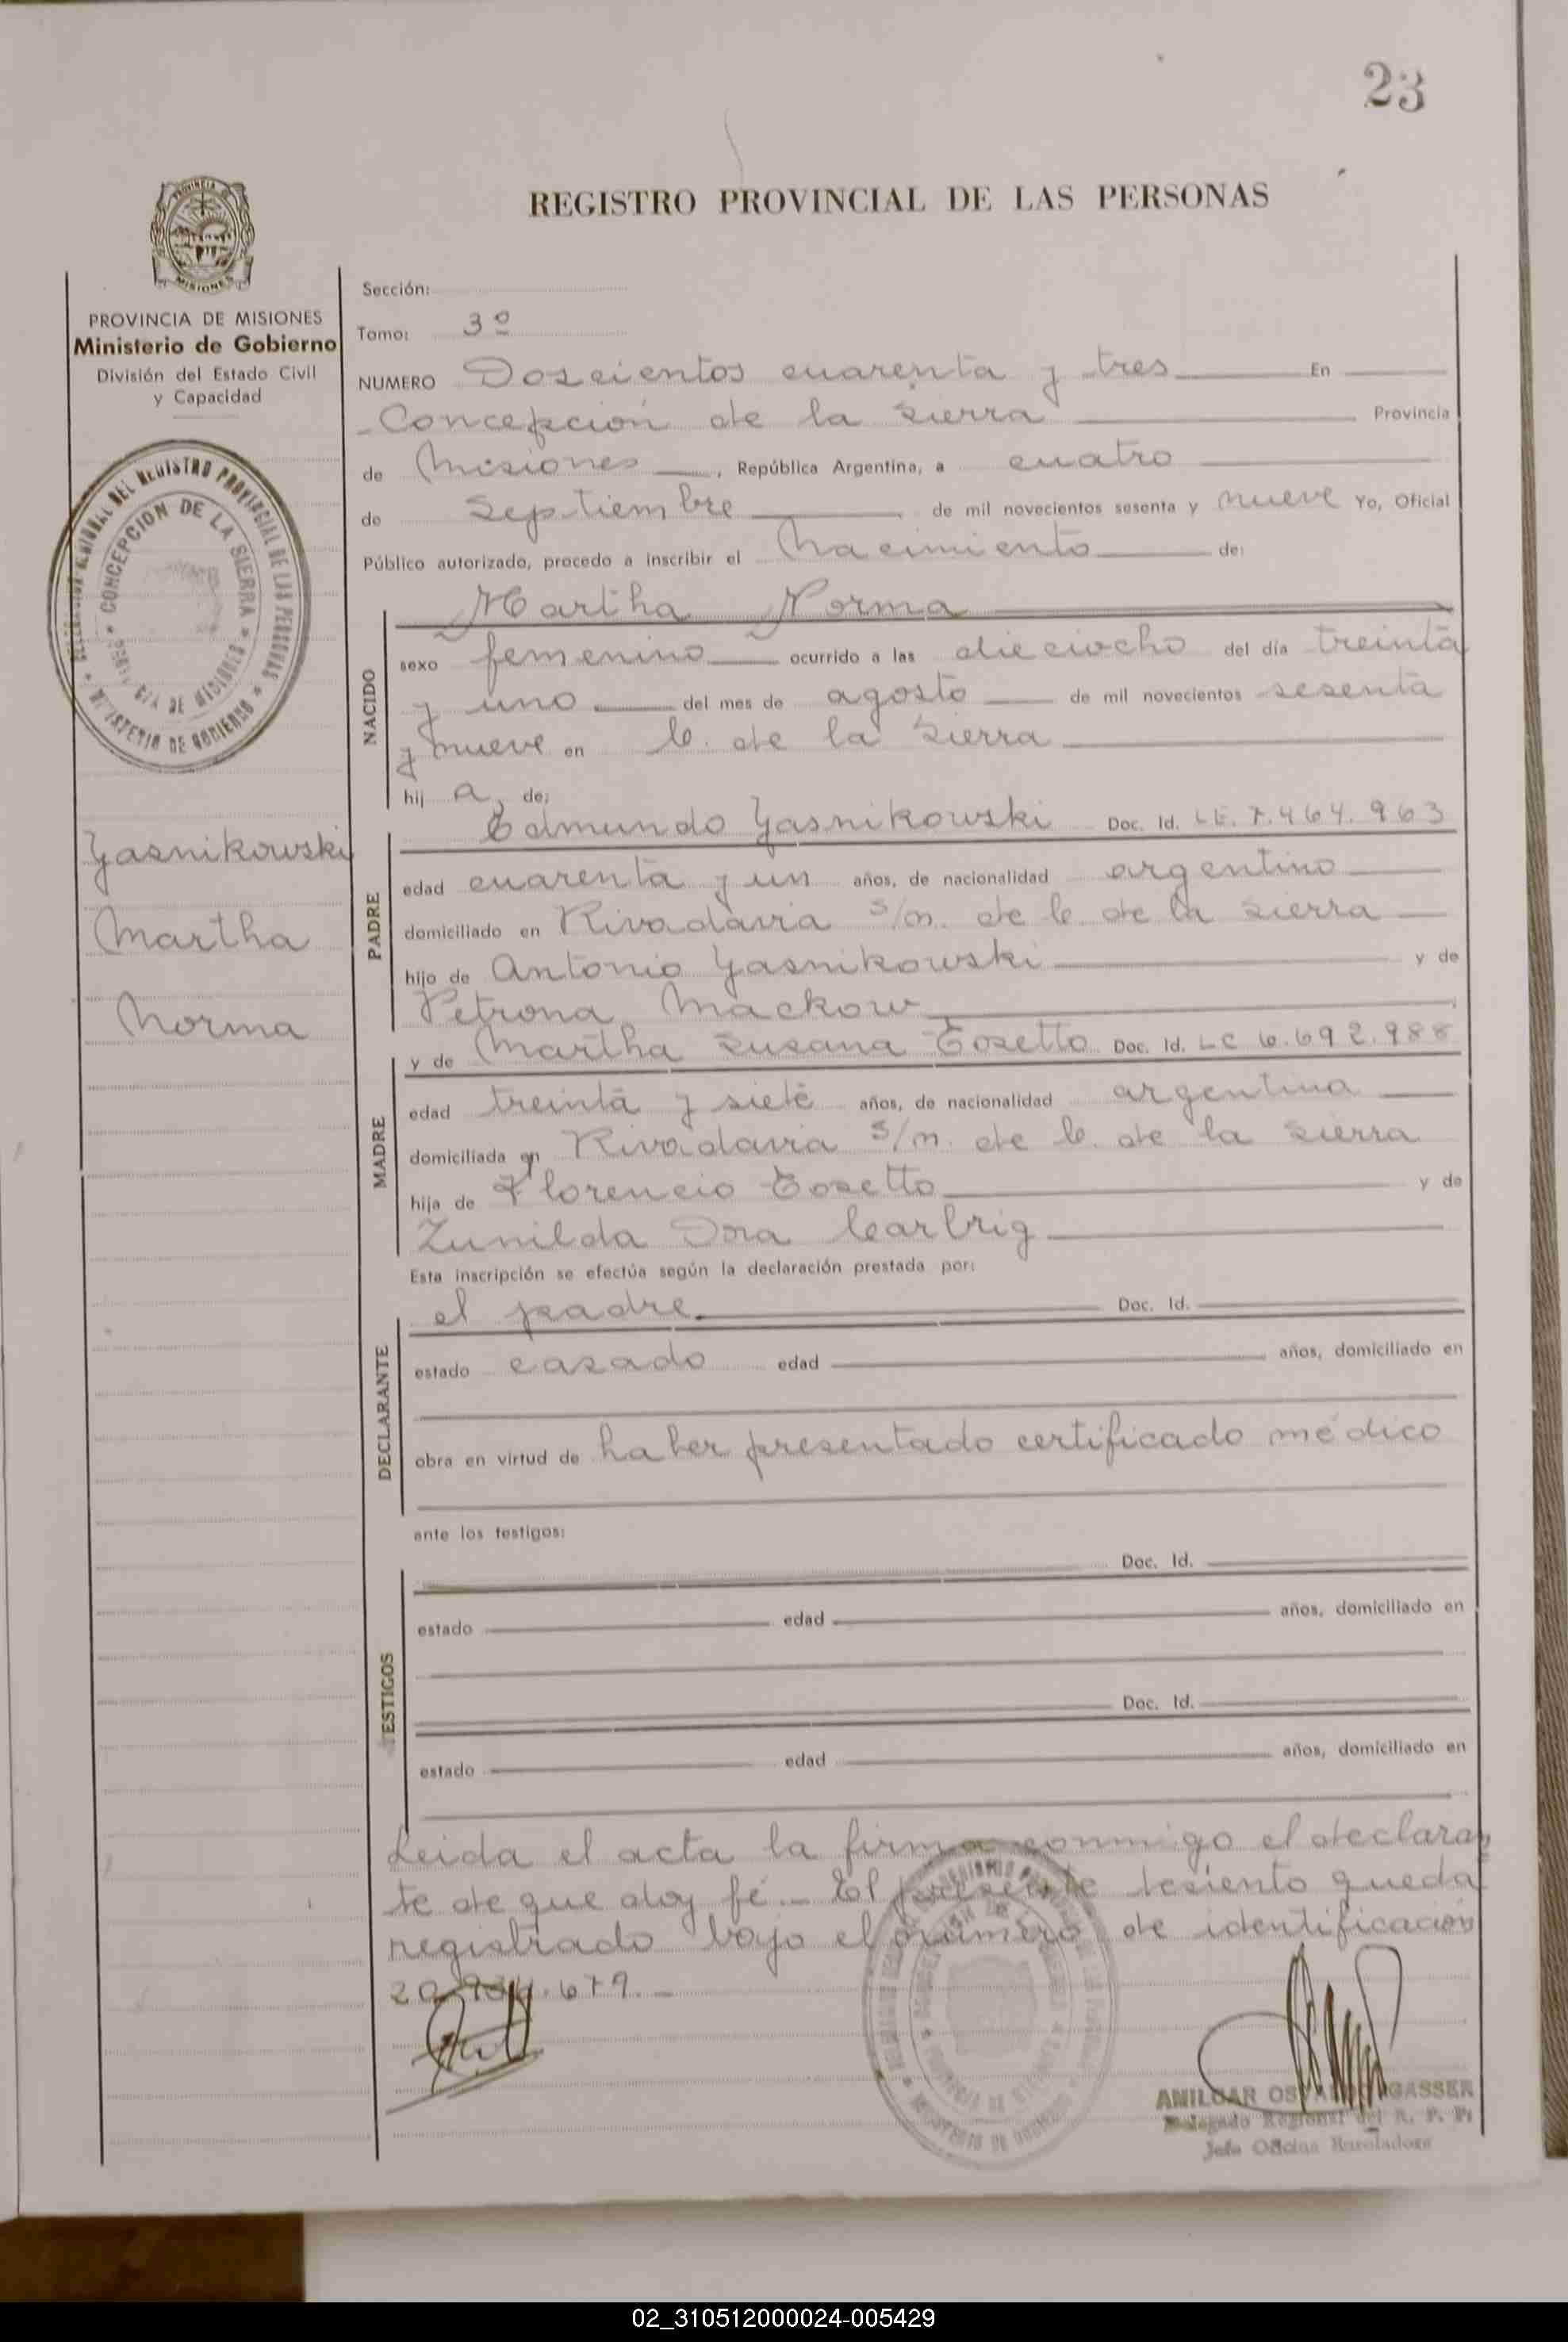 23
REGISTRO PROVINCIAL DE LAS PERSONAS
PROVINCIA DE MISIONES
Ministerio de Gobierno
División del Estado Civil
y Capacidad
CONCEPCION DE LA SIERRA
MINISTERIO DE GOBIERNO
Yasnikowski
Martha
Norma
Sección:
Tomo: 3º
NUMERO Doscientos cuarenta y tres En
Concepción de la Sierra Provincia
de Misiones, República Argentina, a cuatro
de Septiembre de mil novecientos sesenta y nueve Yo, Oficial
Público autorizado, procedo a inscribir el Nacimiento de:
NACIDO
Martha Norma
sexo femenino ocurrido a las dieciocho del día treinta
y uno del mes de agosto de mil novecientos sesenta
y nueve en C. de la Sierra
hij a, de:
PADRE
Edmundo Yasnikowski Doc. Id. LE. 7.464.963
edad cuarenta y un años, de nacionalidad argentino
domiciliado en Rivadavia s/n. de C. de la Sierra
hijo de Antonio Yasnikowski y de
Petrona Mackow
MADRE
y de Martha Susana Tosetto Doc. Id. LC 6.692.988
edad treinta y siete años, de nacionalidad argentina
domiciliada en Rivadavia s/n. de C. de la Sierra
hija de Florencio Tosetto y de
Zunilda Dora
Esta inscripción se efectúa según la declaración prestada por:
DECLARANTE
el padre Doc. Id.
estado casado edad años, domiciliado en
obra en virtud de haber presentado certificado médico
ante los testigos:
TESTIGOS
Doc. Id.
estado edad años, domiciliado en
Doc. Id.
estado edad años, domiciliado en
Leida el acta la firma conmigo el declaran
te de que doy fé. El presente asiento queda
registrado bajo el número de identificación
AMILCAR GASSER
Delegado Regional del R. P. P.
Jefe Oficina
02_310512000024-005429